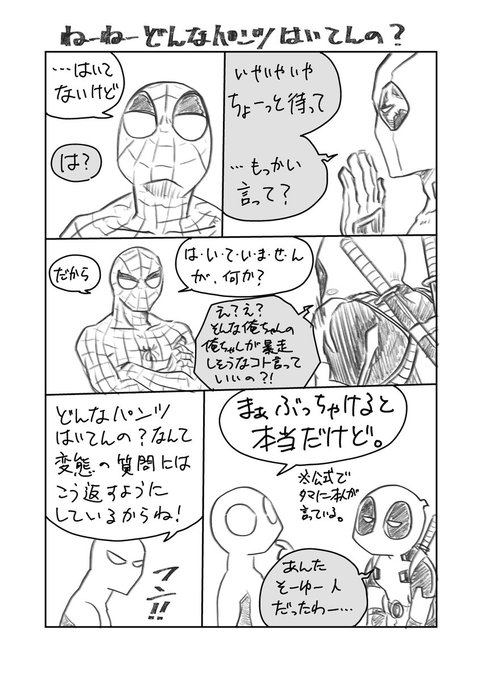 ねーねーどんなパンツはいてんの?
いやいやいや
ちょーっと待って
…もっかい
言って?
…はいて
ないけど
は?
は・い・て・い・ま・せ・ん
が、何か?
だから
え?え?
そんな俺ちゃんの
俺ちゃんが暴走
しそうなコト言って
いいの?!
まぁぶっちゃけると
本当だけど。
※公式で
タマに本人が
言っている。
あんた
そーゆー人
だったわー…
どんなパンツ
はいてんの?なんて
変態の質問には
こう返すように
しているからね!
フン!!